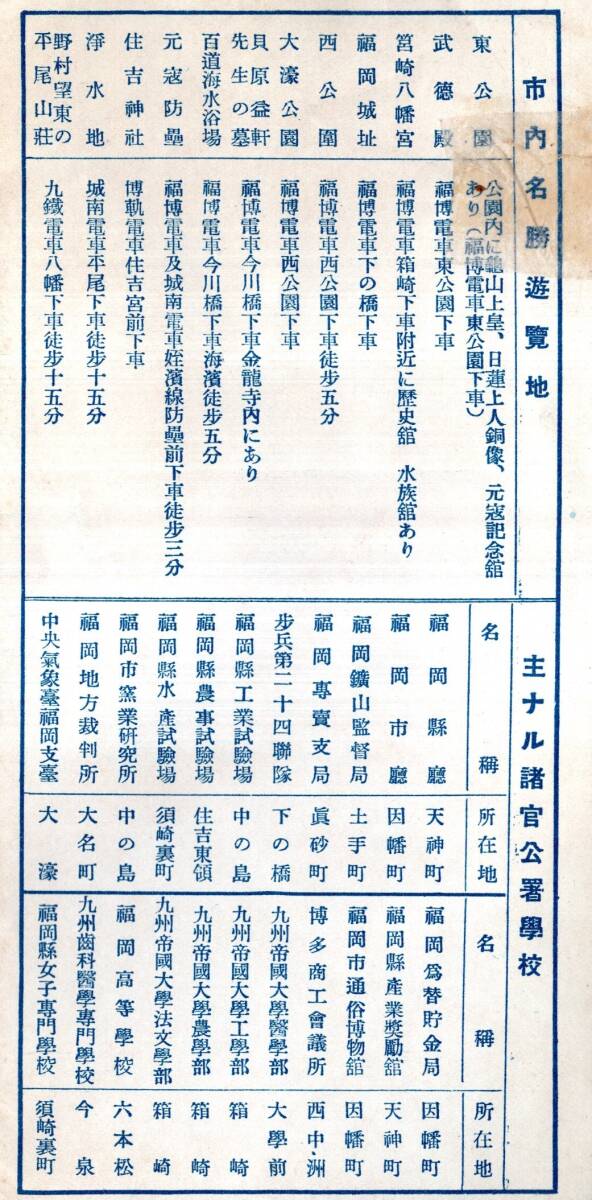 市內名勝遊覽地
東公園 公園內に龜山上皇、日蓮上人銅像、元寇記念館
あり(福博電車東公園下車)
武德殿 福博電車東公園下車
筥崎八幡宮 福博電車箱崎下車附近に歷史館 水族館あり
福岡城址 福博電車下の橋下車
西公園 福博電車西公園下車徒步五分
大濠公園 福博電車西公園下車
貝原益軒
先生の墓 福博電車今川橋下車金龍寺內にあり
百道海水浴場 福博電車今川橋下車海濱徒步五分
元寇防壘 福博電車及城南電車姪濱線防壘前下車徒步三分
住吉神社 博軌電車住吉宮前下車
淨水地 城南電車平尾下車徒步十五分
野村望東の
平尾山莊 九鐵電車八幡下車徒步十五分
主ナル諸官公署學校
名稱 所在地 名稱 所在地
福岡縣廳 天神町 福岡爲替貯金局 因幡町
福岡市廳 因幡町 福岡縣產業奬勵館 天神町
福岡鑛山監督局 土手町 福岡市通俗博物館 因幡町
福岡專賣支局 眞砂町 博多商工會議所 西中洲
步兵第二十四聯隊 下の橋 九州帝國大學醫學部 大學前
福岡縣工業試驗場 中の島 九州帝國大學工學部 箱崎
福岡縣農事試驗場 住吉東領 九州帝國大學農學部 箱崎
福岡縣水產試驗場 須崎裏町 九州帝國大學法文學部 箱崎
福岡市窯業硏究所 中の島 福岡高等學校 六本松
福岡地方裁判所 大名町 九州齒科醫學專門學校 今泉
中央氣象臺福岡支臺 大濠 福岡縣女子專門學校 須崎裏町